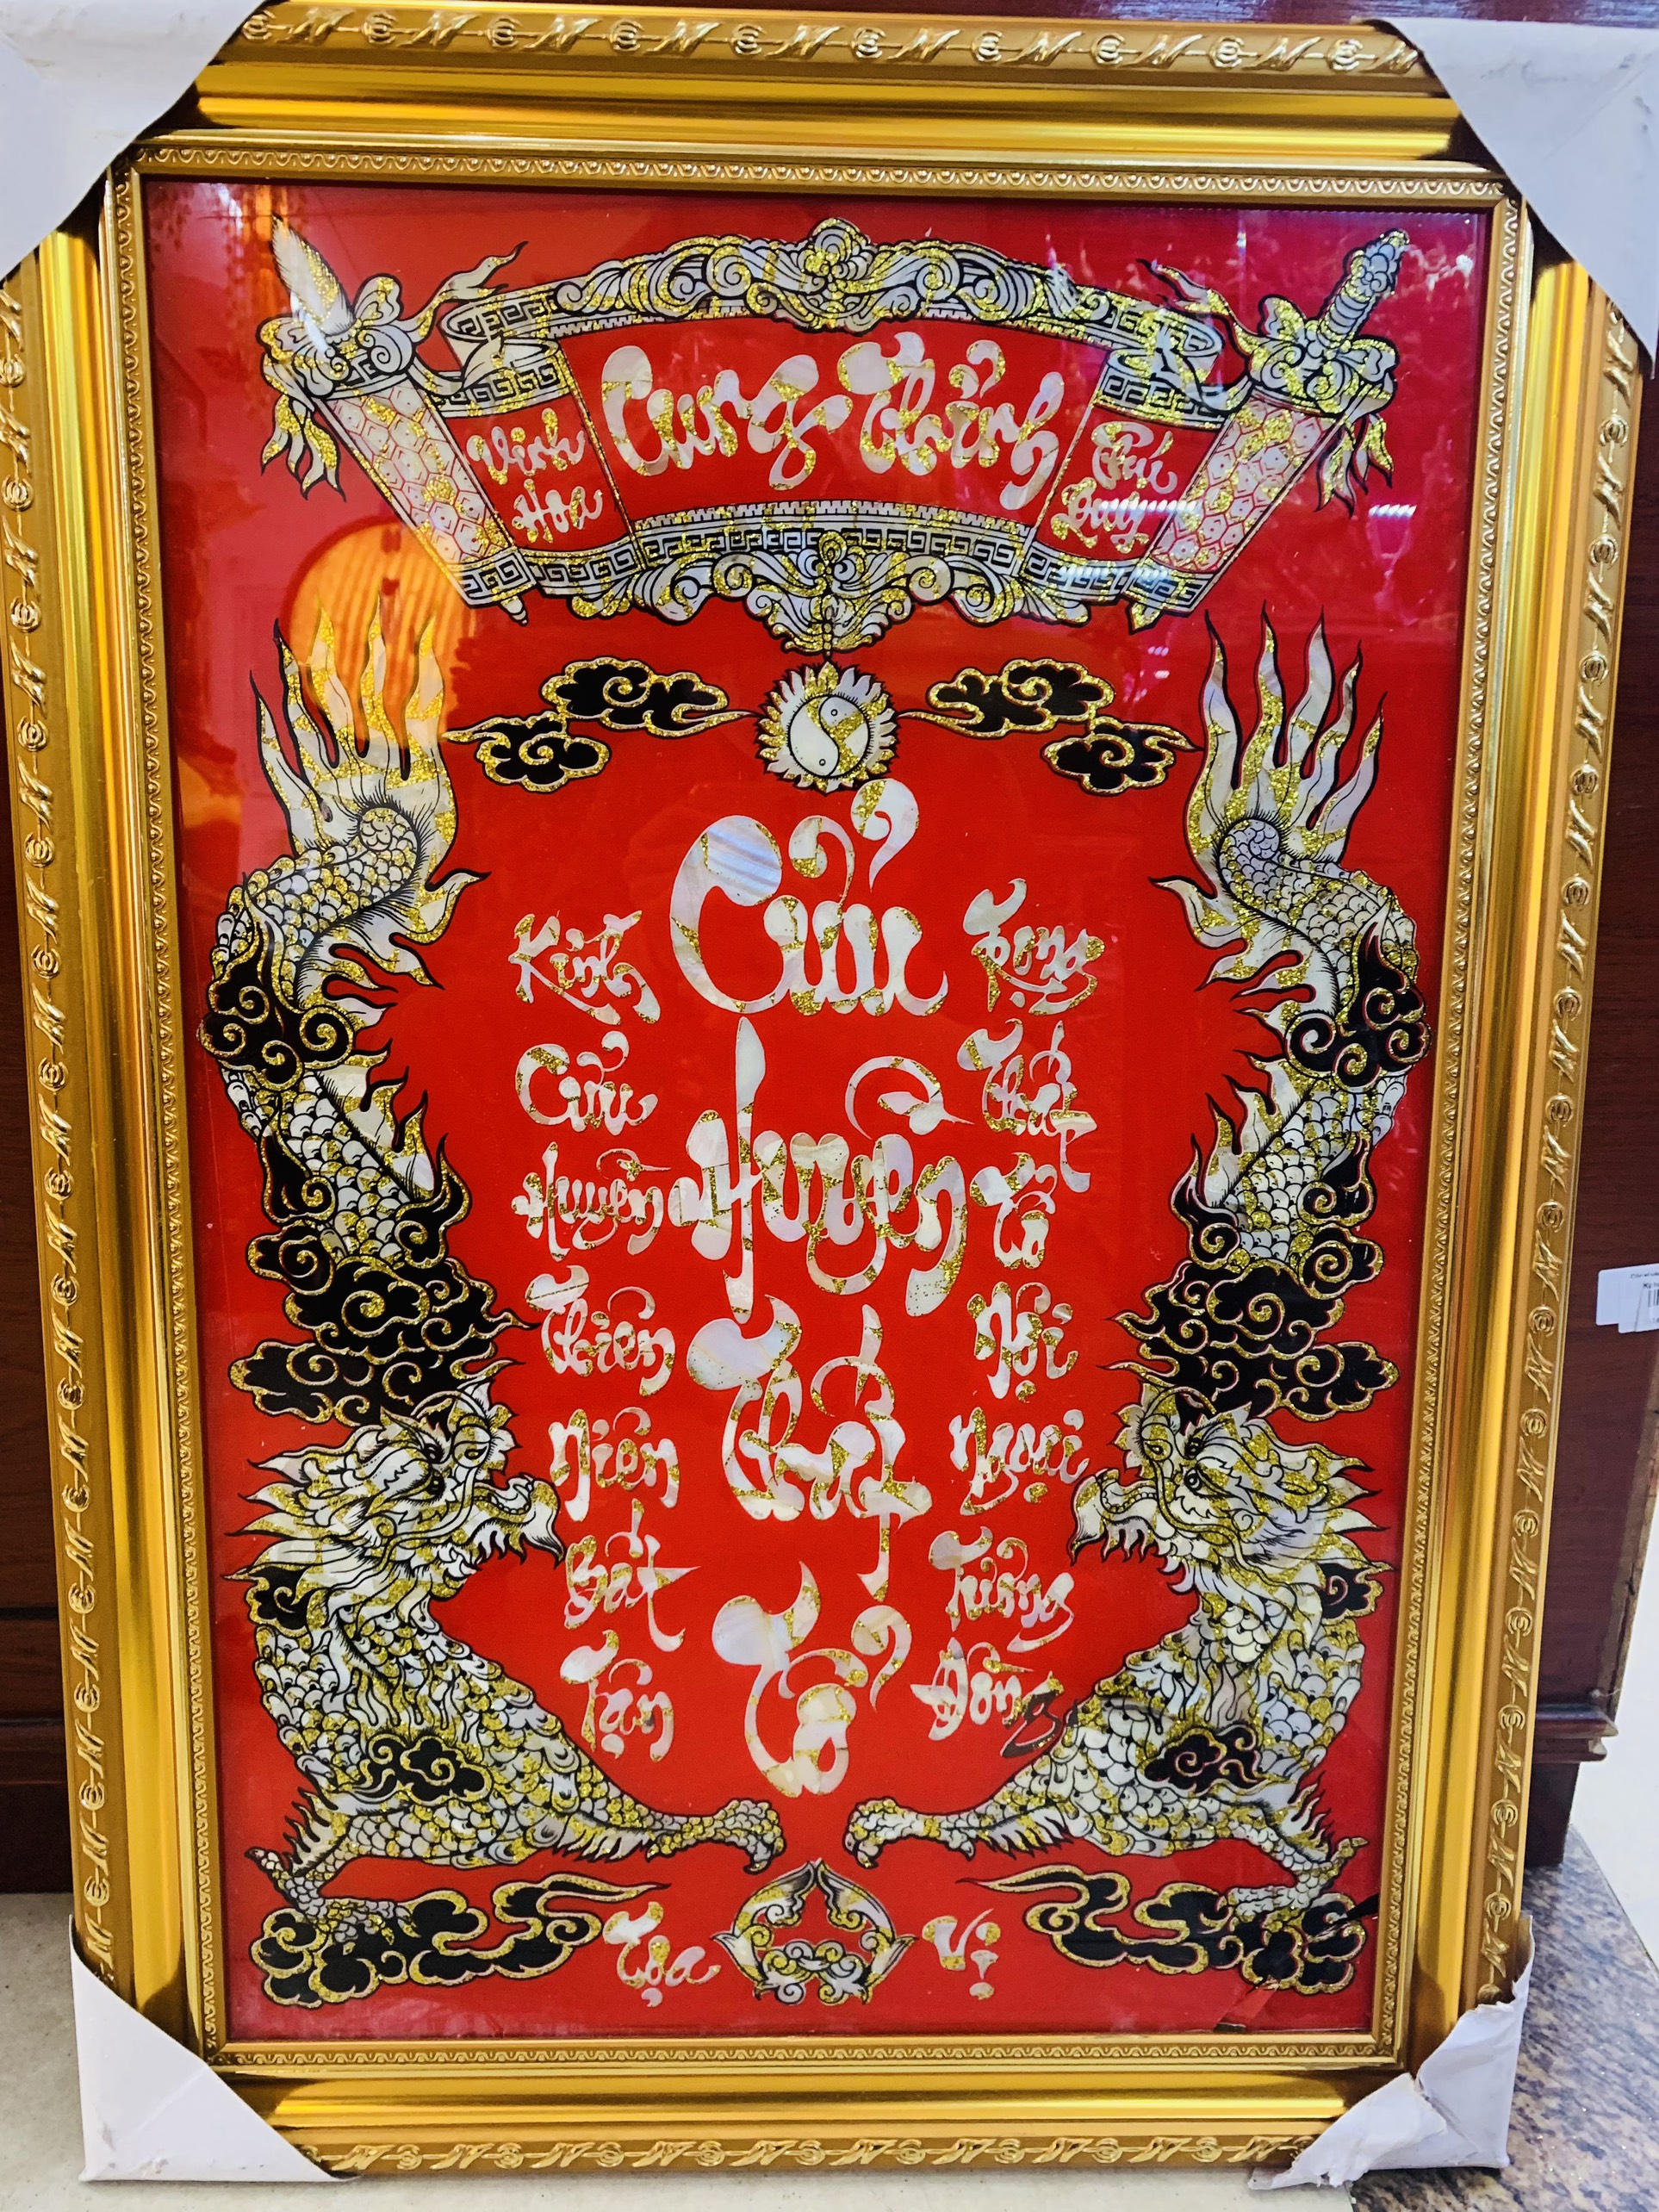 Vinh Hoa
Cung Thỉnh
Phú Quý
Cửu Huyền Thất Tổ
Kính Cửu Huyền Thiên Niên Bất Tận
Trọng Thất Tổ Nội Ngoại Tương Đồng
Tọa Vị